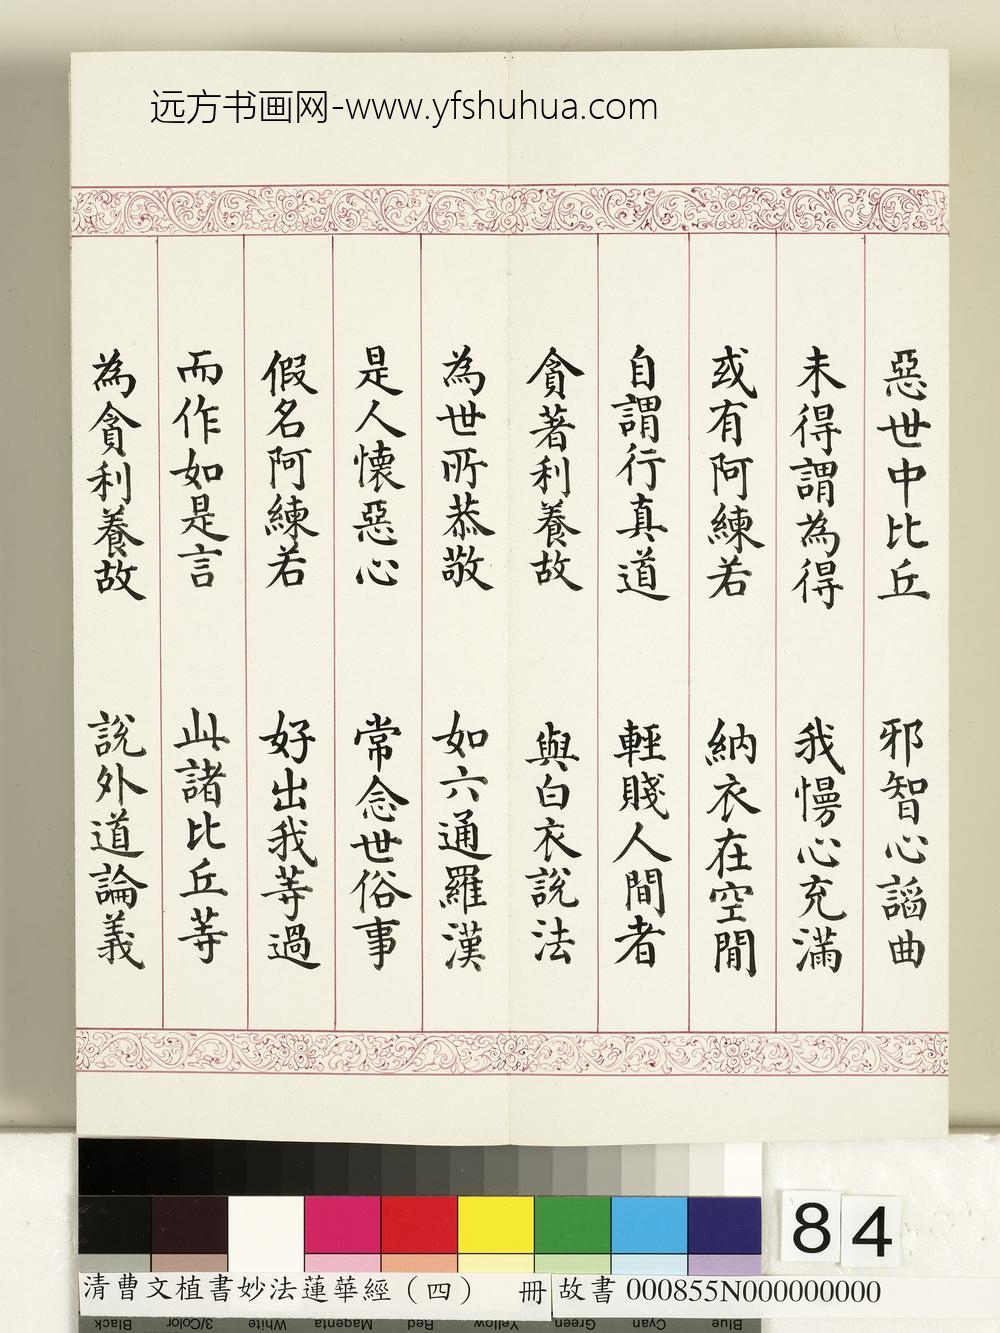 远方书画网-www.yfshuhua.com
惡世中比丘 邪智心謟曲
未得謂為得 我慢心充滿
或有阿練若 納衣在空閒
自謂行真道 輕賤人間者
貪著利養故 與白衣說法
為世所恭敬 如六通羅漢
是人懷惡心 常念世俗事
假名阿練若 好出我等過
而作如是言 此諸比丘等
為貪利養故 說外道論義
84
清曹文植書妙法蓮華經（四） 冊 故書 000855N000000000
Black 3/Color White Magenta Red Yellow Green Cyan Blue